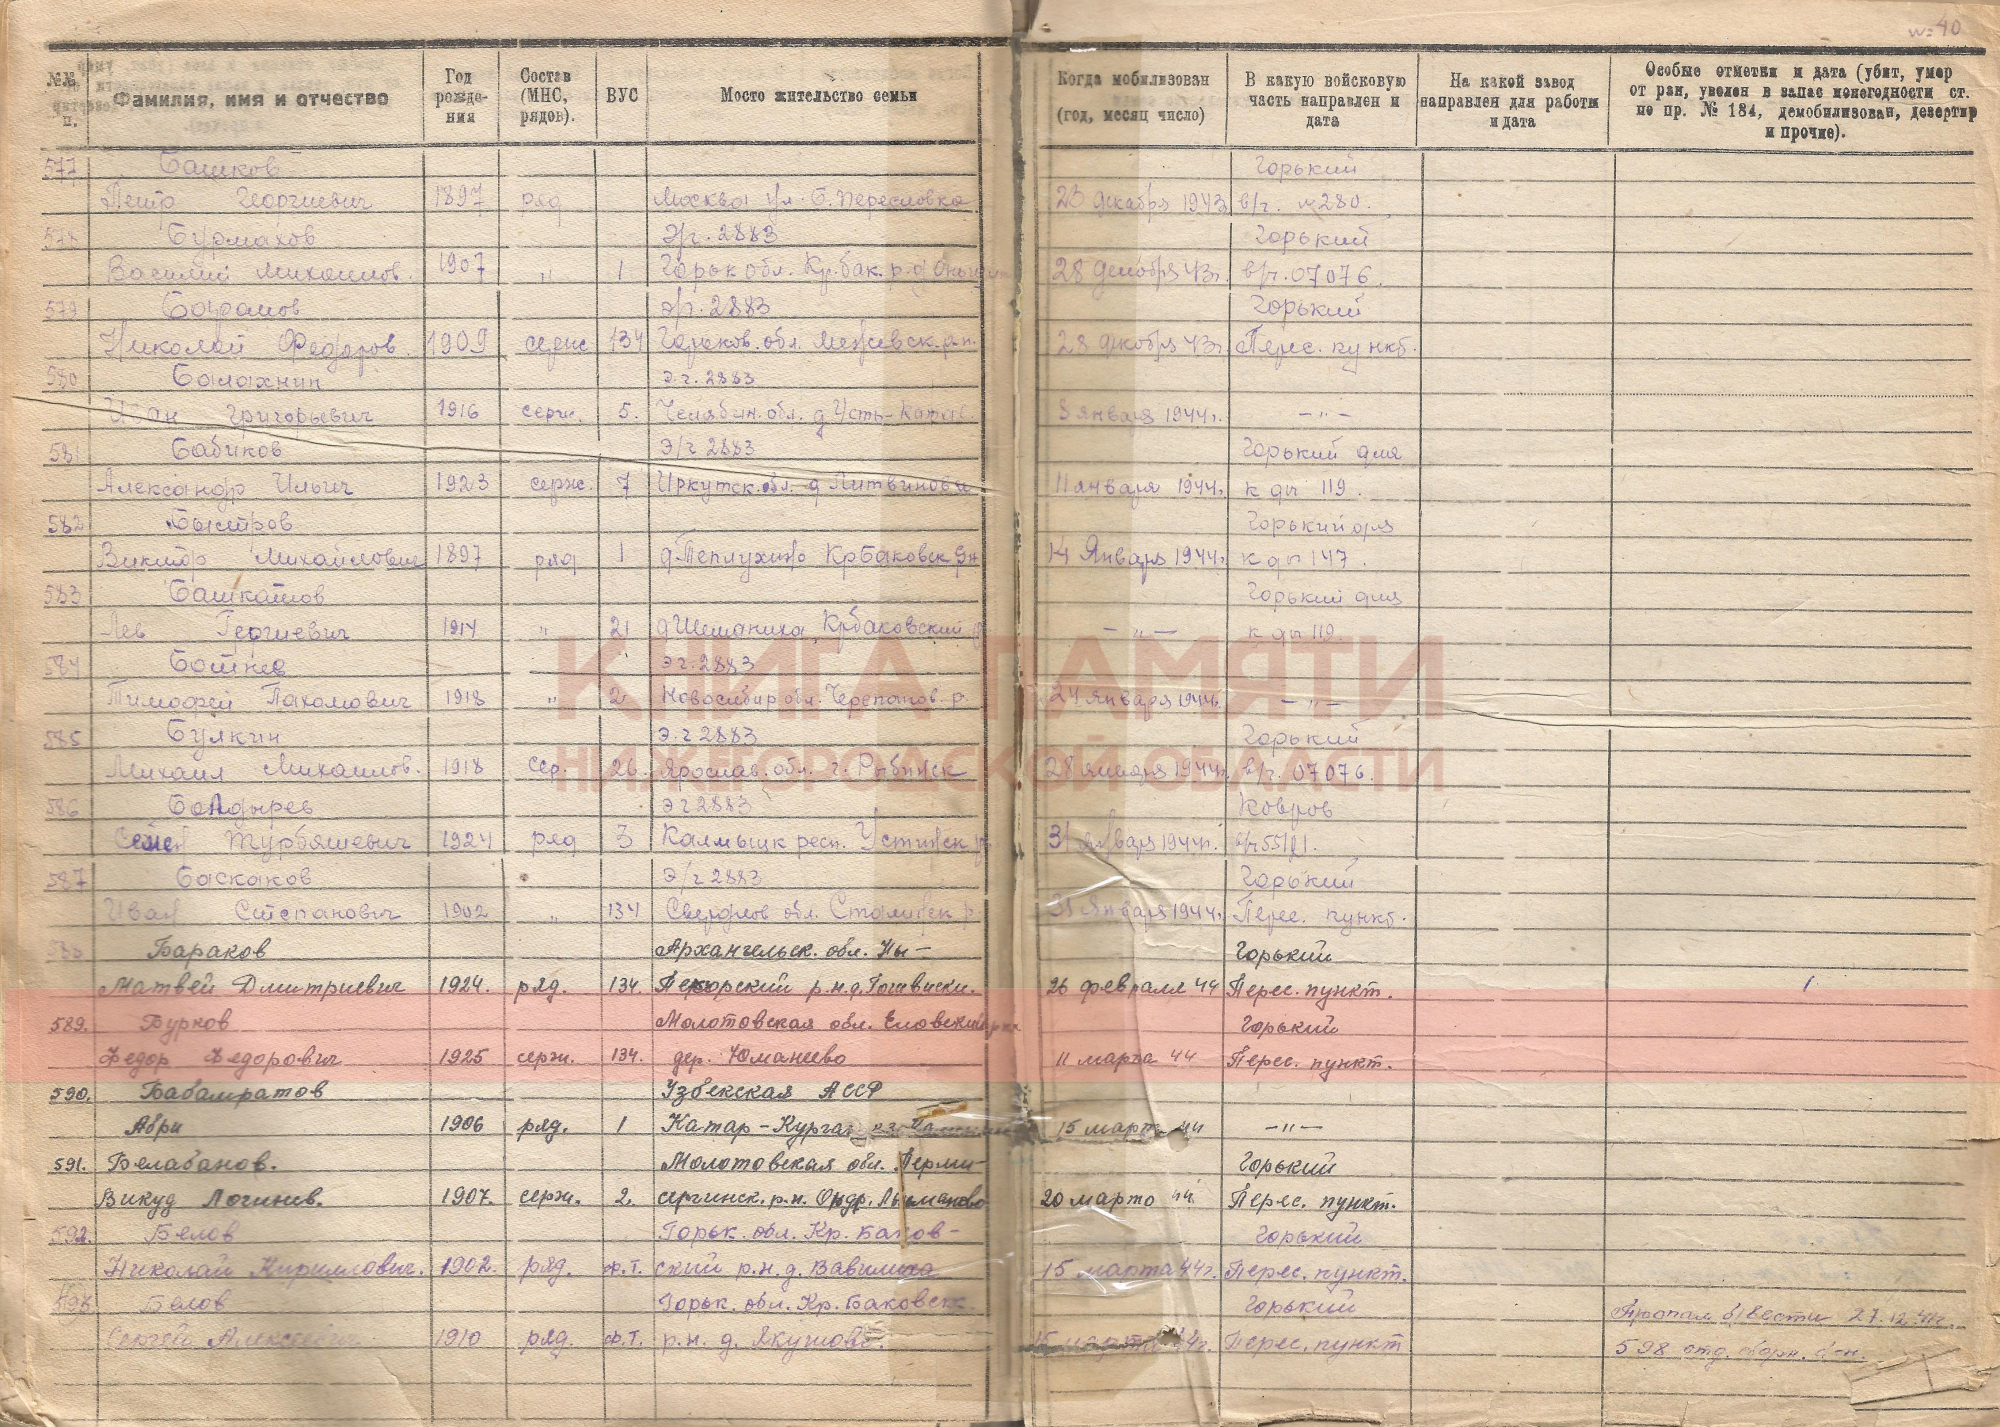 № 40
№№ п. Фамилия, имя и отчество Год рожде-ния Состав (МНС, рядов). ВУС Место жительство семьи Когда мобилизован (год, месяц число) В какую войсковую часть направлен и дата На какой завод направлен для работы и дата Особые отметки и дата (убит, умер от ран, уволен в запас по негодности ст. по пр. № 184, демобилизован, дезертир и прочие).
577 Башков Горький
Петр Георгиевич 1897 ряд Москва ул. Б. Переяловка 23 декабря 1943 в/ч. № 280.
578 Бурмахов Э/г. 2883 Горький
Василий Михаилов. 1907 „ 1 Горьк обл. Кр.бак. р. д 28 декабря 43г. в/ч. 07076.
579 э/г. 2883 Горький
Николай Федоров. 1909 серж 134 Горьков. обл. р.н. 28 декабря 43г Перес. пункт.
580 Балахнин э.г. 2883
Иван Григорьевич 1916 серж. 5. Челябин. обл. д Усть-Катав. 8 января 1944г. — „ —
581 Бабиков Э/г 2883 Горький для
Александр Ильич 1923 серж. 7 Иркутск. обл. д Литвинова 11 января 1944г. к ды 119.
582 Быстров Горький для
Виктор Михайлович 1897 ряд 1 д. Теплухино Кр Баковск рн 14 Января 1944г. к ды 147.
583 Башкатов Горький для
Лев Гергиевич 1914 „ 21 д Шеманиха, Крбаковский — „ — к ды 119.
584 э г. 2883
Тимофей Пахомович 1918 „ 2 Новосибир обл. Черепанов. р. 24 января 1944г. — „ —
585 Булкин э.г 2883 Горький
Михаил Михаилов. 1918 сер. 26 Ярослав. обл. г. Рыбинск 28 января 1944г. в/г. 07076.
586 Болдырев э г 2883 Ковров
Семен 1924 ряд 3 Калмыцк респ. 31 января 1944г.
587 Баскаков Э/г 2883 Горький
Иван Степанович 1902 „ 134 Свердлов обл. 31 Января 1944г. Перес. пункт.
588 Бараков Архангельск. обл. Ны— Горький
Матвей Дмитриевич 1924. ряд. 134. р.н.д. 26 февраля 44 Перес. пункт.
589. Бурков Молотовская обл. Еловский Горький
Федор Федорович 1925 серж. 134. дер. Юманеево 11 марта 44 Перес. пункт.
590. Бабамратов Узбекская АССР
Абри 1906 ряд. 1 Катар-Курган 15 март 44 — „ —
591. Белабанов. Молотовская обл. Перми— Горький
Викуд Логинов. 1907. серж. 2. сергинск. р.н. 20 марта 44. Перес. пункт.
592. Белов Горьк. обл. Кр. Баков— Горький
Николай Кириллович. 1902. ряд. ф.т. ский р.н. д. Вавилиха 15 марта 44г. Перес. пункт.
593. Белов Горьк. обл. Кр. Баковск. Горький Пропал б/вести 27.12.44г.
Сергей Алексеевич 1910 ряд. ф.т. р.н. д. Якушово. 15 марта 44г. Перес. пункт 598 отд.
КНИГА ПАМЯТИ
НИЖЕГОРОДСКОЙ ОБЛАСТИ